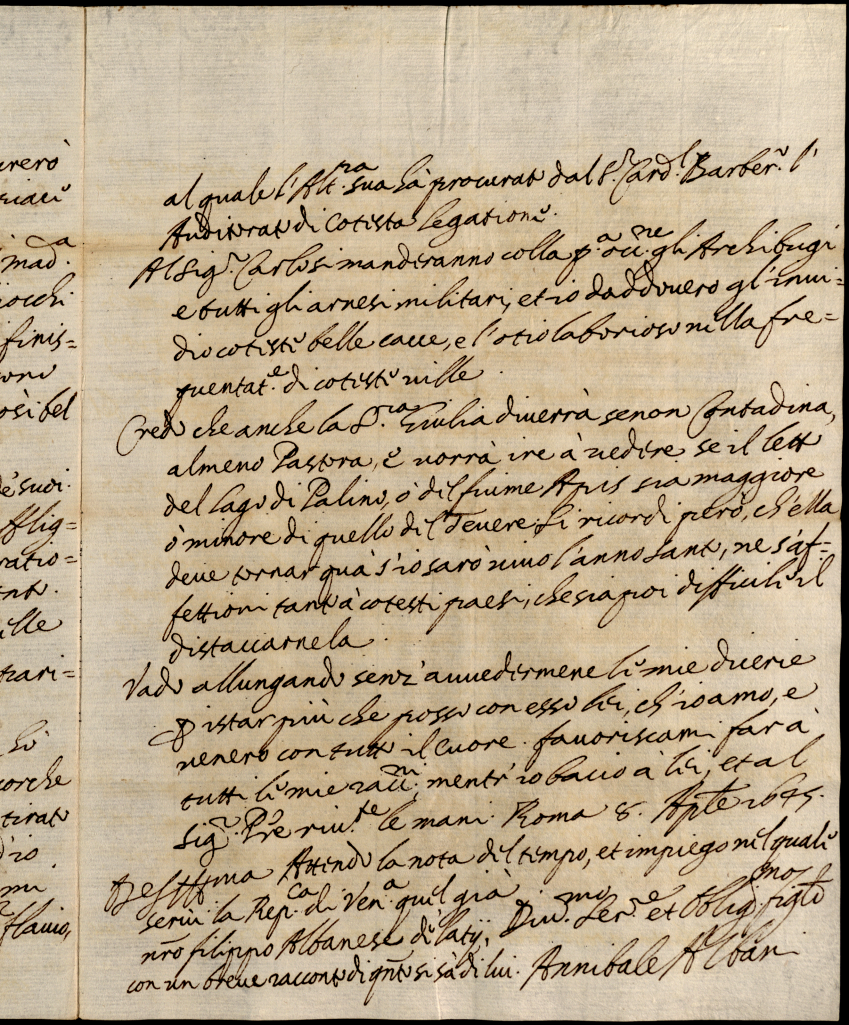 urerò
mad.a
iocchi
finis=
osì bel
è suoi.
fflig=
ratio=
ille
zari=
orche
tirato
d'io
mu
flavio,
al quale l'Alt.za sua hà procurato dal S.r Card.l Barber.o l'
Auditorato di cotesta legatione.
Al Sig.r Carlo si manderanno colla p.a occ.ne gli Archibugi
e tutti gli arnesi militari, et io daddovero gl'invi=
dio coteste belle cacce, e l'otio laborioso nella fre=
quentat.e di coteste ville.
Credo che anche la S.ra Giulia diverrà se non Contadina,
almeno Pastora, e vorrà ire à vedere se il letto
del lago di Palino, ò del fiume Apis sia maggiore
ò minore di quello del Tevere. Si ricordi però, ch'ella
deve tornar quà s'io sarò vivo l'anno santo, ne s'af=
fettioni tanto à cotesti paesi, che sia poi difficile il
distaccarnela.
Vado allungando senz'avvedermene le mie dicerie
p istar più che posso con esso lei, ch'io amo, e
venero con tutto il cuore. favoriscami far à
tutti le mie racc.m, mentr'io bacio à lei, et al
Sig.r Pre riv.te le mani. Roma 8. Apte 1645.
Attendo la nota del tempo, et impiego nel quale
servì la Rep.ca di Ven.a quel già
nro filippo Albanese de laty,
con un breve racconto di qnto si sà di lui.
Div.mo Ser.e et Oblig.mo figlo
Annibale Albani